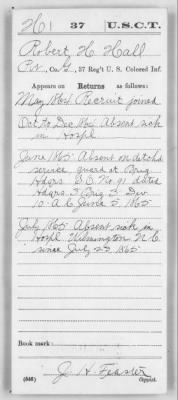 H | 37 | U.S.C.T.
Robert H. Hall
Pvt, Co. G, 37 Reg't U. S. Colored Inf.
Appears on Returns as follows:
May 1864 Recruit joined
Oct. to Dec 1864 Absent sick
in Hospl
June 1865 Absent on detchd
service guard at Brig
Hdqrs S.O. No 91 dated
Hdqrs 3 Brig 3 Div
10 A.C. June 5, 1865
July 1865 Absent sick in
Hospl Wilmington N.C.
since July 23 1865
Book mark:
J. H. Feaster
(546) Copyist.